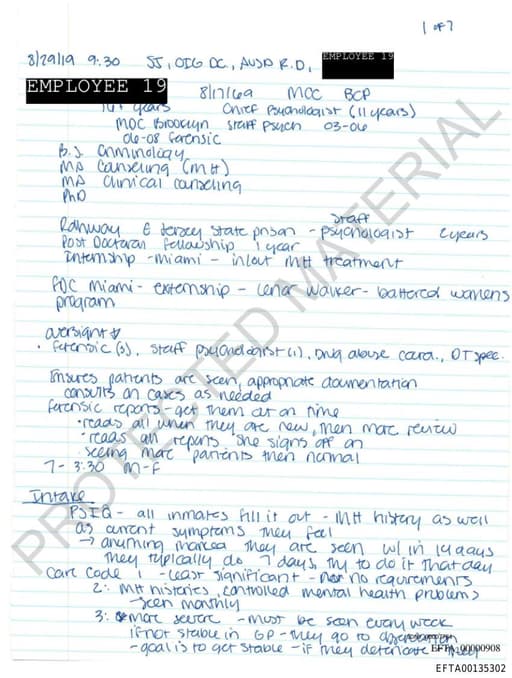 1 of 7
8/29/19 9:30 SJ, OIG DC, AUSA R.D., EMPLOYEE 19
EMPLOYEE 19 8/17/69 MDC BCP
16+ years Chief Psychologist (11 years)
MDC Brooklyn Staff Psych 03-06
06-08 forensic
B.S. Criminology
MA Counseling (MH)
MA Clinical counseling
PhD
staff
Rahway E Jersey State prison - psychologist 2 years
Post Doctoral Fellowship 1 year
Internship - Miami - in/out MH treatment
FDC Miami - externship - Lenor Walker - battered womens
program
oversight
• forensic (3), staff psychologist (1), Drug abuse coord., DT spec.
Ensures patients are seen, appropriate documentation
consults on cases as needed
forensic reports - get them out on time
• reads all when they are new, then more review
• reads all reports she signs off on
• seeing more patients then normal
7 - 3:30 M-F
Intake
PSIQ - all inmates fill it out - MH history as well
as current symptoms they feel
→ anything marked they are seen w/in 14 days
They typically do 7 days, try to do it that day
Care Code 1 - least significant - no requirements
2: MH histories, controlled mental health problems
- seen monthly
3: more severe - must be seen every week
if not stable in GP - they go to
- goal is to get stable - if they deteriorate they
EFTA_00000908
EFTA00135302
PROTECTED MATERIAL